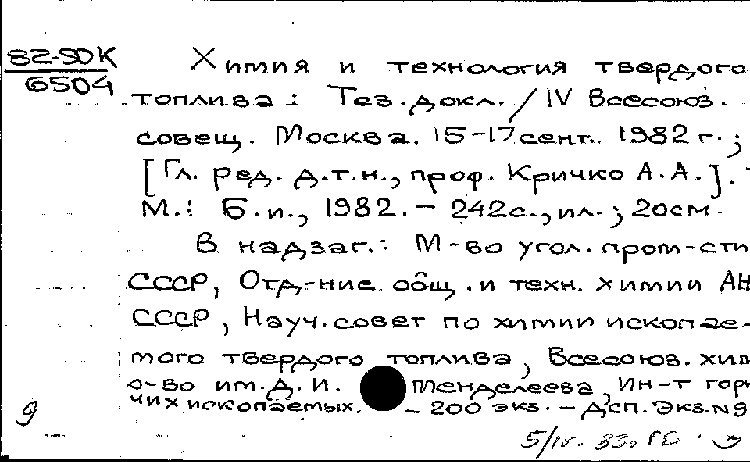 82-50К
6504
Химия и технология твердого
топлива: Тез. докл. / IV Всесоюз.
совещ. Москва. 15-17 сент. 1982 г.;
[Гл. ред. д.т.н., проф. Кричко А.А.].
М.: Б.и., 1982. - 242с., ил.; 20см.
В надзаг.: М-во угол. пром-сти
СССР, Отд-ние общ. и техн. химии АН
СССР, Науч. совет по химии ископае-
мого твердого топлива, Всесоюз. хим
о-во им. Д.И. Менделеева, Ин-т горю
чих ископаемых. - 200 экз. - Дсп. Экз. N9
9